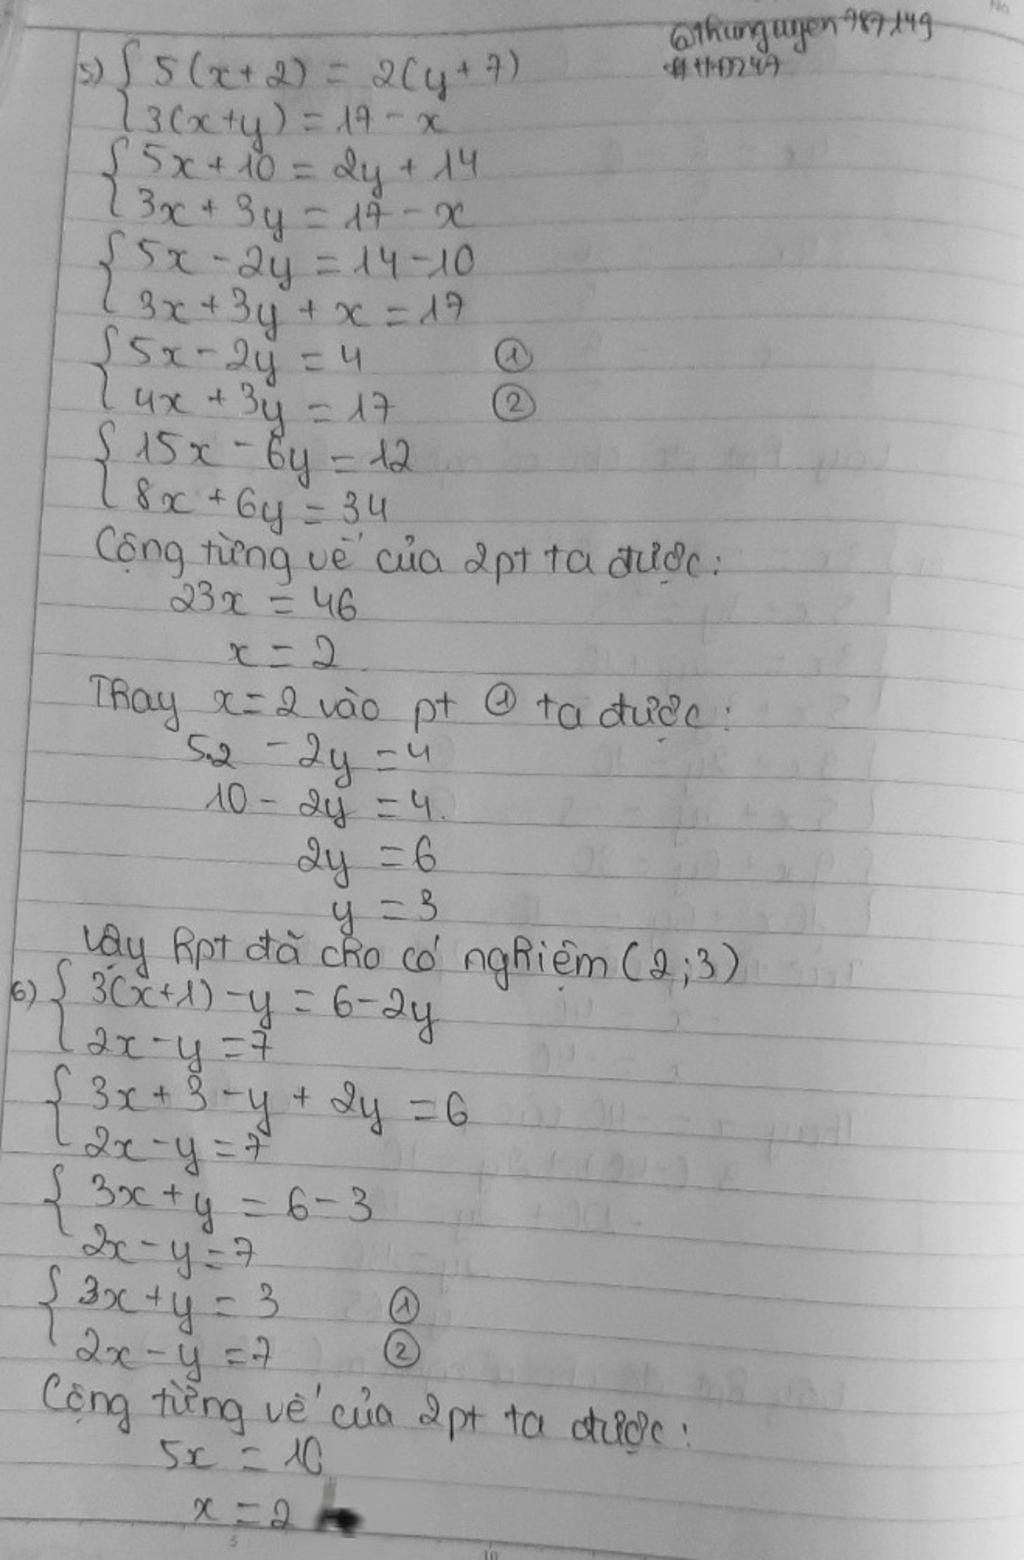 @thunguyen787149
5) { 5(x+2) = 2(y+7)
3(x+y) = 17 - x
{ 5x + 10 = 2y + 14
3x + 3y = 17 - x
{ 5x - 2y = 14 - 10
3x + 3y + x = 17
{ 5x - 2y = 4 ①
4x + 3y = 17 ②
{ 15x - 6y = 12
8x + 6y = 34
Cộng từng vế của 2pt ta được:
23x = 46
x = 2
Thay x = 2 vào pt ① ta được:
5.2 - 2y = 4
10 - 2y = 4
2y = 6
y = 3
Vậy hpt đã cho có nghiệm (2;3)
6) { 3(x+1) - y = 6 - 2y
2x - y = 7
{ 3x + 3 - y + 2y = 6
2x - y = 7
{ 3x + y = 6 - 3
2x - y = 7
{ 3x + y = 3 ①
2x - y = 7 ②
Cộng từng vế của 2pt ta được:
5x = 10
x = 2